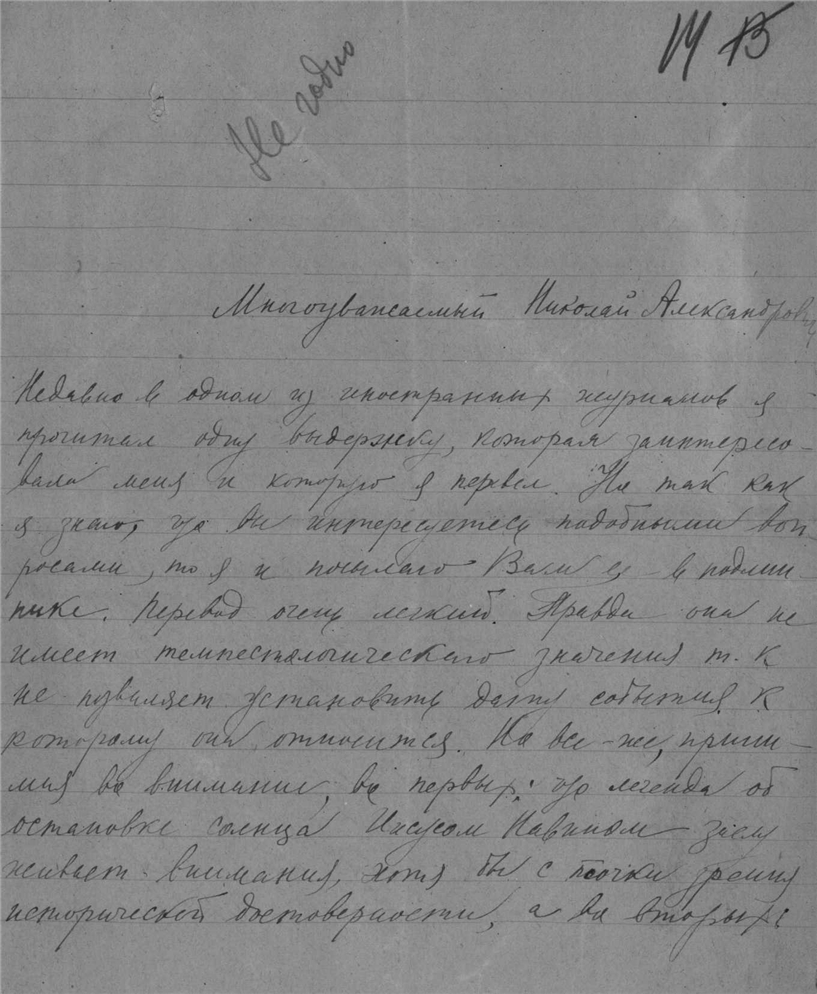 Не годно
Многоуважаемый Николай Александрович
Недавно в одном из иностранных журналов я
прочитал одну выдержку, которая заинтересо-
вала меня и которую я перевел. Но так как
я знаю, что вы интересуетесь подобными воп-
росами, то я и посылаю Вам ее в подлин-
нике. Перевод очень легкий. Правда она не
имеет темпестологического значения т. к
не позволяет установить дату события к
которому она относится. Но все-же, прини-
мая во внимание, во первых: что легенда об
остановке солнца Иисусом Навином заслу
живает внимания, хотя бы с точки зрения
исторической достоверности, а во вторых: